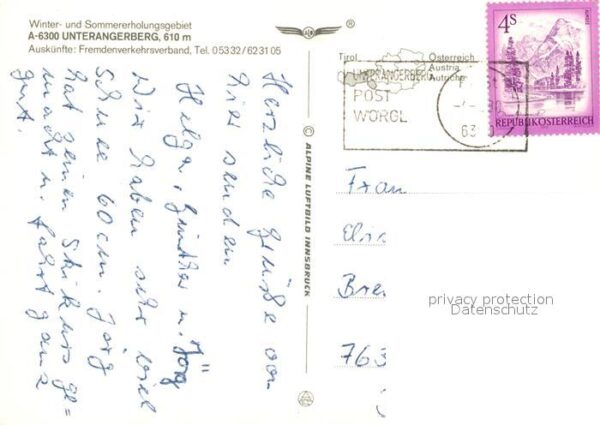 Winter- und Sommererholungsgebiet
A-6300 UNTERANGERBERG, 610 m
Auskünfte: Fremdenverkehrsverband, Tel. 05332/63105
Herzliche Grüße von
hier senden
Helga, Günther u. Jörg
Wir haben sehr viel
Schnee 60 cm. Jörg
hat seinen Skikurs ge=
macht u. fährt ganz
gut.
© ALPINE LUFTBILD INNSBRUCK
ALM
®
Tirol
Österreich
Austria
Autriche
UNTERANGERBERG
POST
WÖRGL
63
4S
REPUBLIK ÖSTERREICH
Frau
Bre
763
privacy protection
Datenschutz